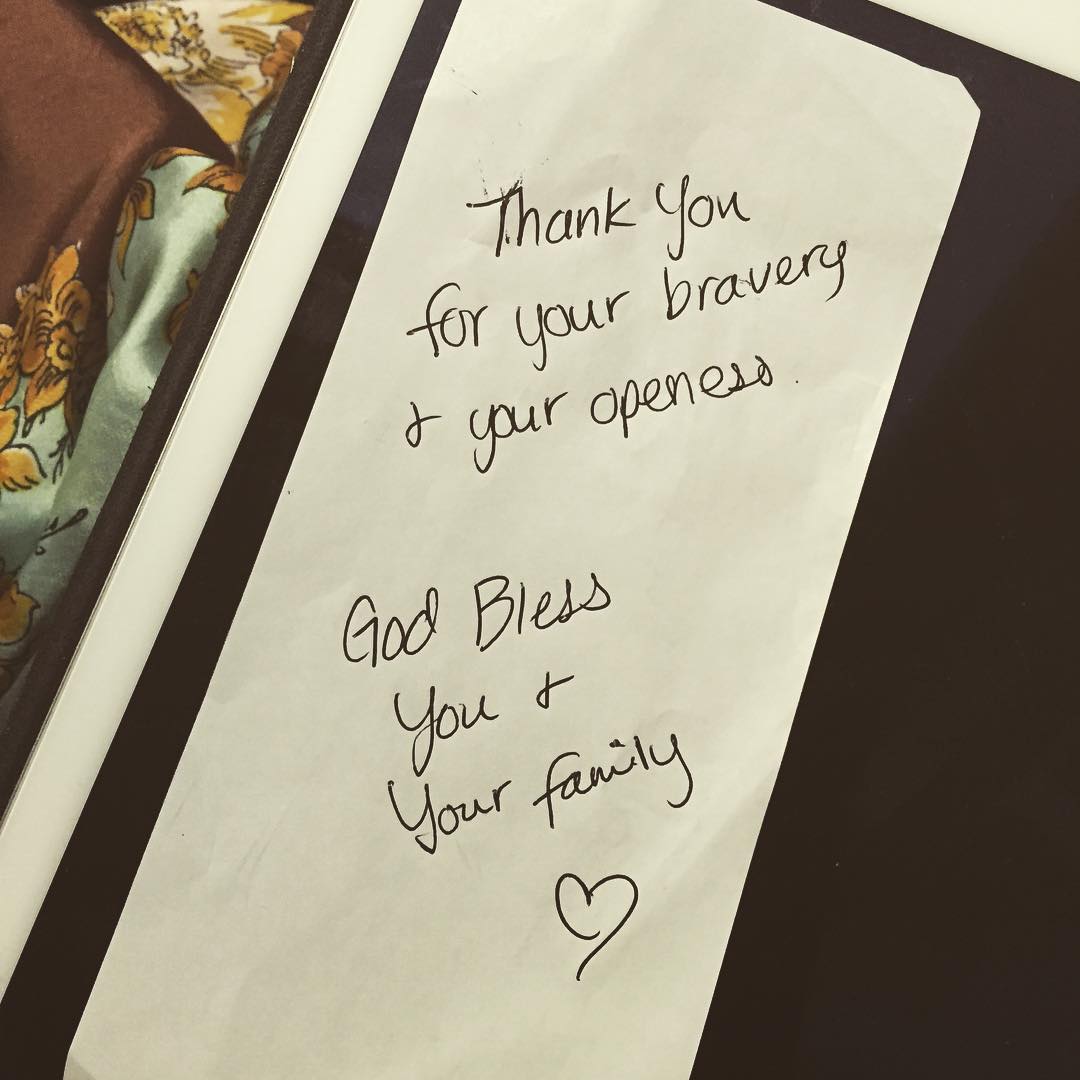 Thank You
for your bravery
& your openess.
God Bless
You &
Your family